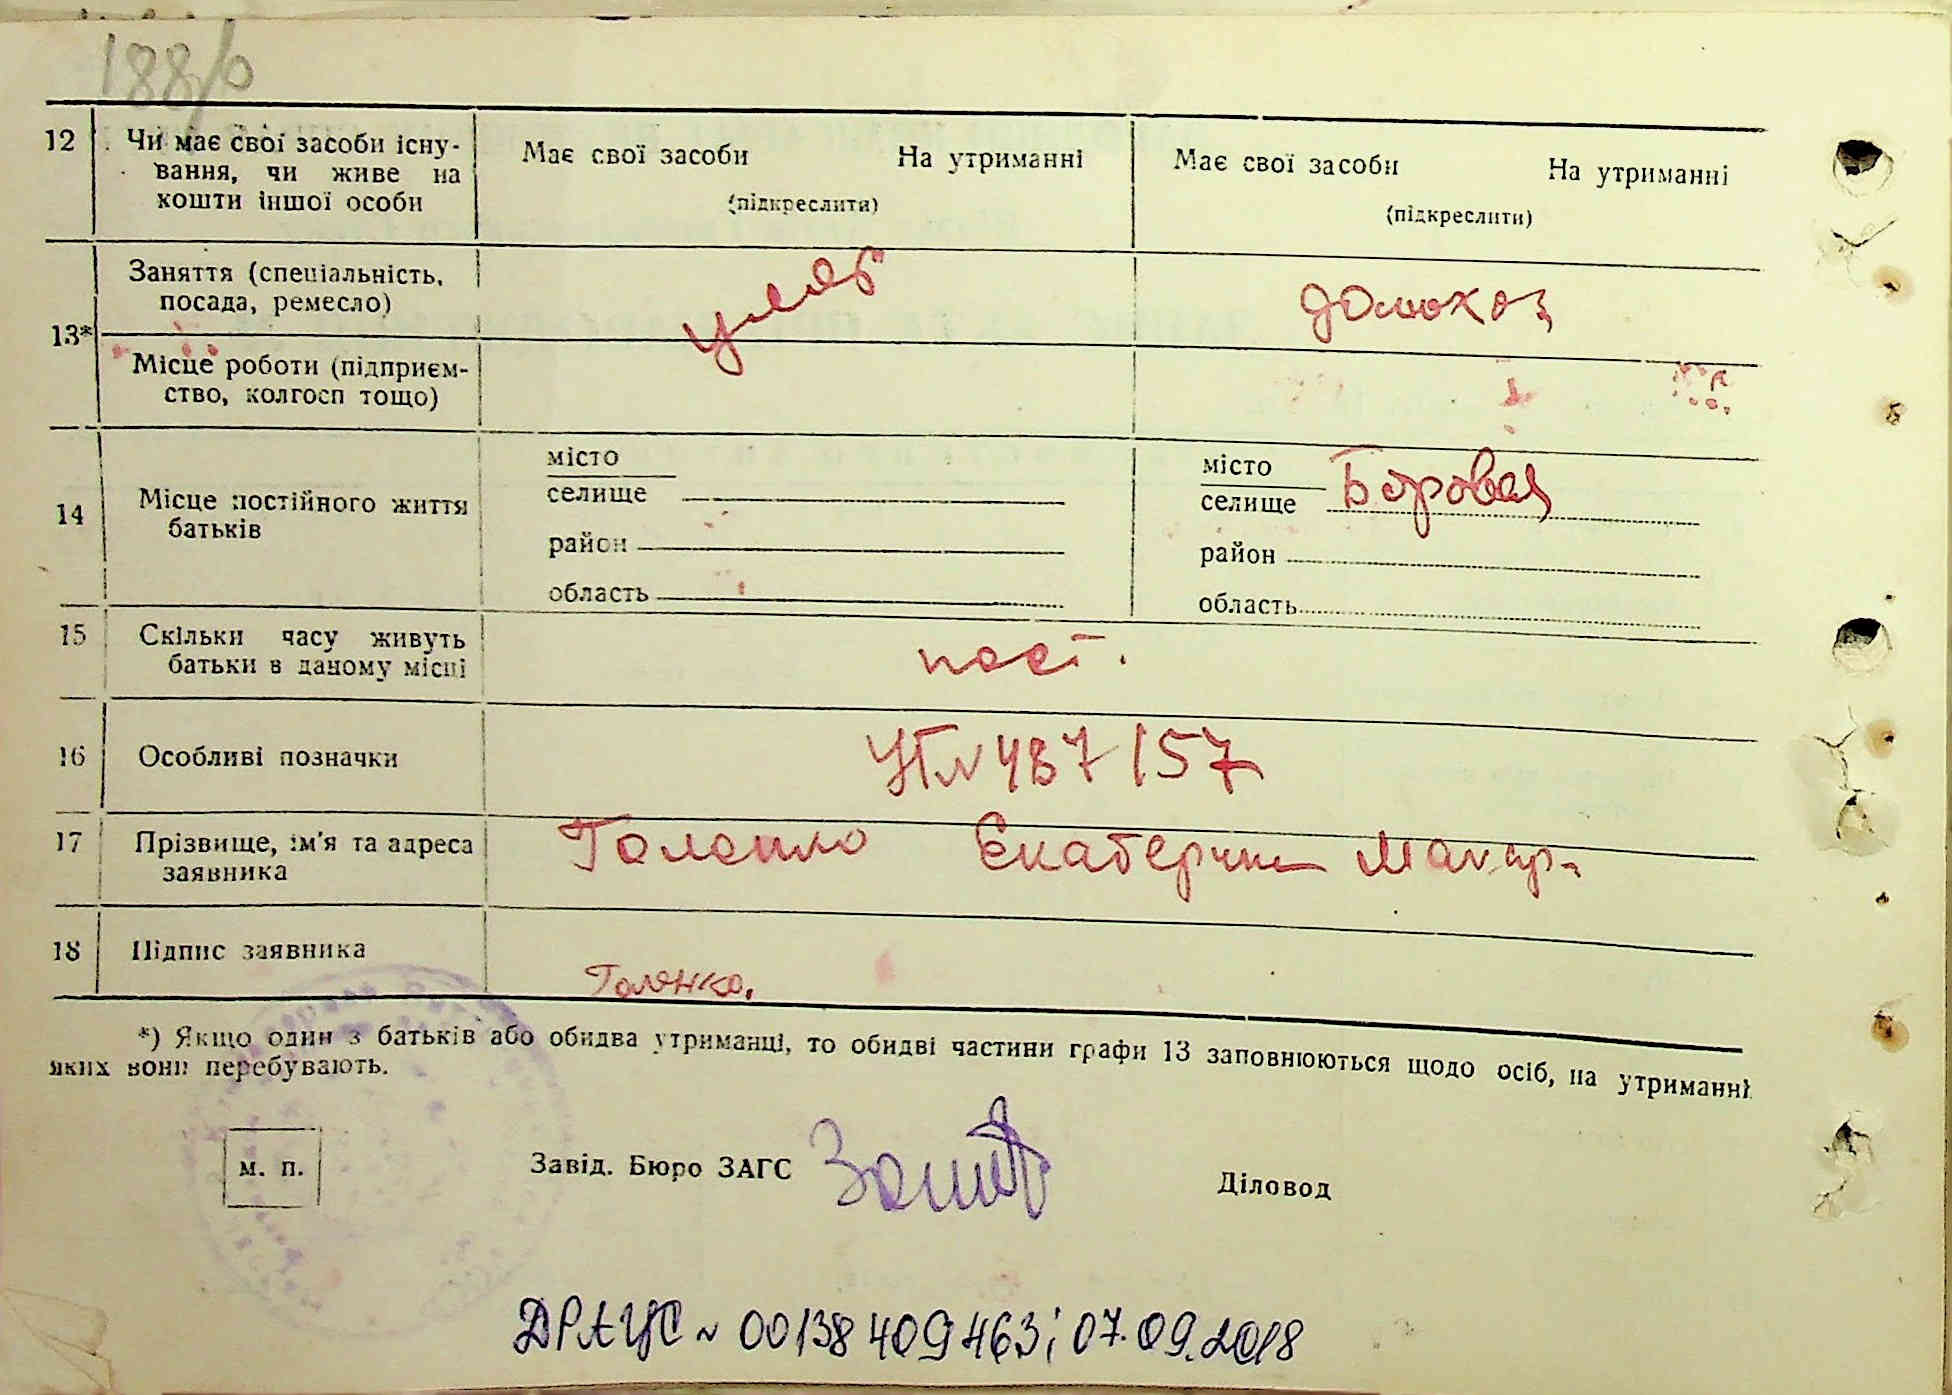 188/о
12 Чи має свої засоби існу-
вання, чи живе на
кошти іншої особи
Має свої засоби На утриманні
(підкреслити)
Має свої засоби На утриманні
(підкреслити)
13*
Заняття (спеціальність,
посада, ремесло)
домохоз
Місце роботи (підприєм-
ство, колгосп тощо)
14 Місце постійного життя
батьків
місто
селище
район
область
місто
селище Боровая
район
область
15 Скільки часу живуть
батьки в даному місці
пост.
16 Особливі позначки
487157
17 Прізвище, ім'я та адреса
заявника
Екатерина Макар-
18 Підпис заявника
*) Якщо один з батьків або обидва утриманці, то обидві частини графи 13 заповнюються щодо осіб, на утриманні
яких вони перебувають.
м. п.
Завід. Бюро ЗАГС
Діловод
ДРАЦС ~ 00138409463; 07.09.2018